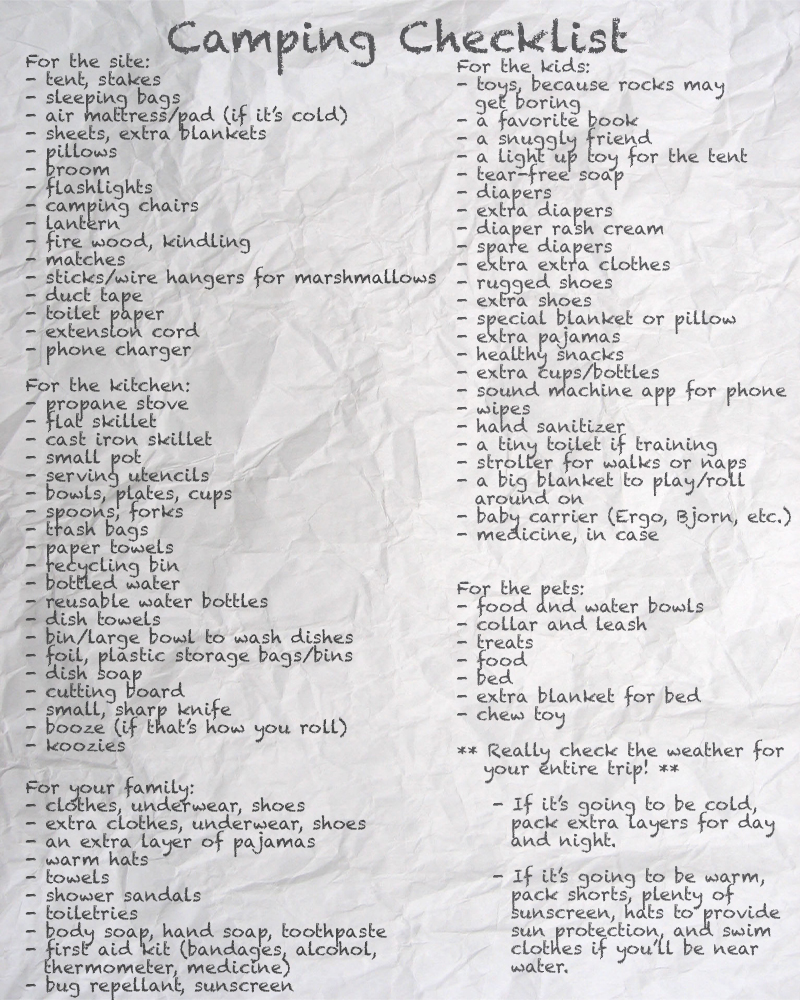 Camping Checklist
For the site:
- tent, stakes
- sleeping bags
- air mattress/pad (if it's cold)
- sheets, extra blankets
- pillows
- broom
- flashlights
- camping chairs
- lantern
- fire wood, kindling
- matches
- sticks/wire hangers for marshmallows
- duct tape
- toilet paper
- extension cord
- phone charger
For the kitchen:
- propane stove
- flat skillet
- cast iron skillet
- small pot
- serving utencils
- bowls, plates, cups
- spoons, forks
- trash bags
- paper towels
- recycling bin
- bottled water
- reusable water bottles
- dish towels
- bin/large bowl to wash dishes
- foil, plastic storage bags/bins
- dish soap
- cutting board
- small, sharp knife
- booze (if that's how you roll)
- koozies
For your family:
- clothes, underwear, shoes
- extra clothes, underwear, shoes
- an extra layer of pajamas
- warm hats
- towels
- shower sandals
- toiletries
- body soap, hand soap, toothpaste
- first aid kit (bandages, alcohol,
thermometer, medicine)
- bug repellant, sunscreen
For the kids:
- toys, because rocks may
get boring
- a favorite book
- a snuggly friend
- a light up toy for the tent
- tear-free soap
- diapers
- extra diapers
- diaper rash cream
- spare diapers
- extra extra clothes
- rugged shoes
- extra shoes
- special blanket or pillow
- extra pajamas
- healthy snacks
- extra cups/bottles
- sound machine app for phone
- wipes
- hand sanitizer
- a tiny toilet if training
- stroller for walks or naps
- a big blanket to play/roll
around on
- baby carrier (Ergo, Bjorn, etc.)
- medicine, in case
For the pets:
- food and water bowls
- collar and leash
- treats
- food
- bed
- extra blanket for bed
- chew toy
** Really check the weather for
your entire trip! **
- If it's going to be cold,
pack extra layers for day
and night.
- If it's going to be warm,
pack shorts, plenty of
sunscreen, hats to provide
sun protection, and swim
clothes if you'll be near
water.